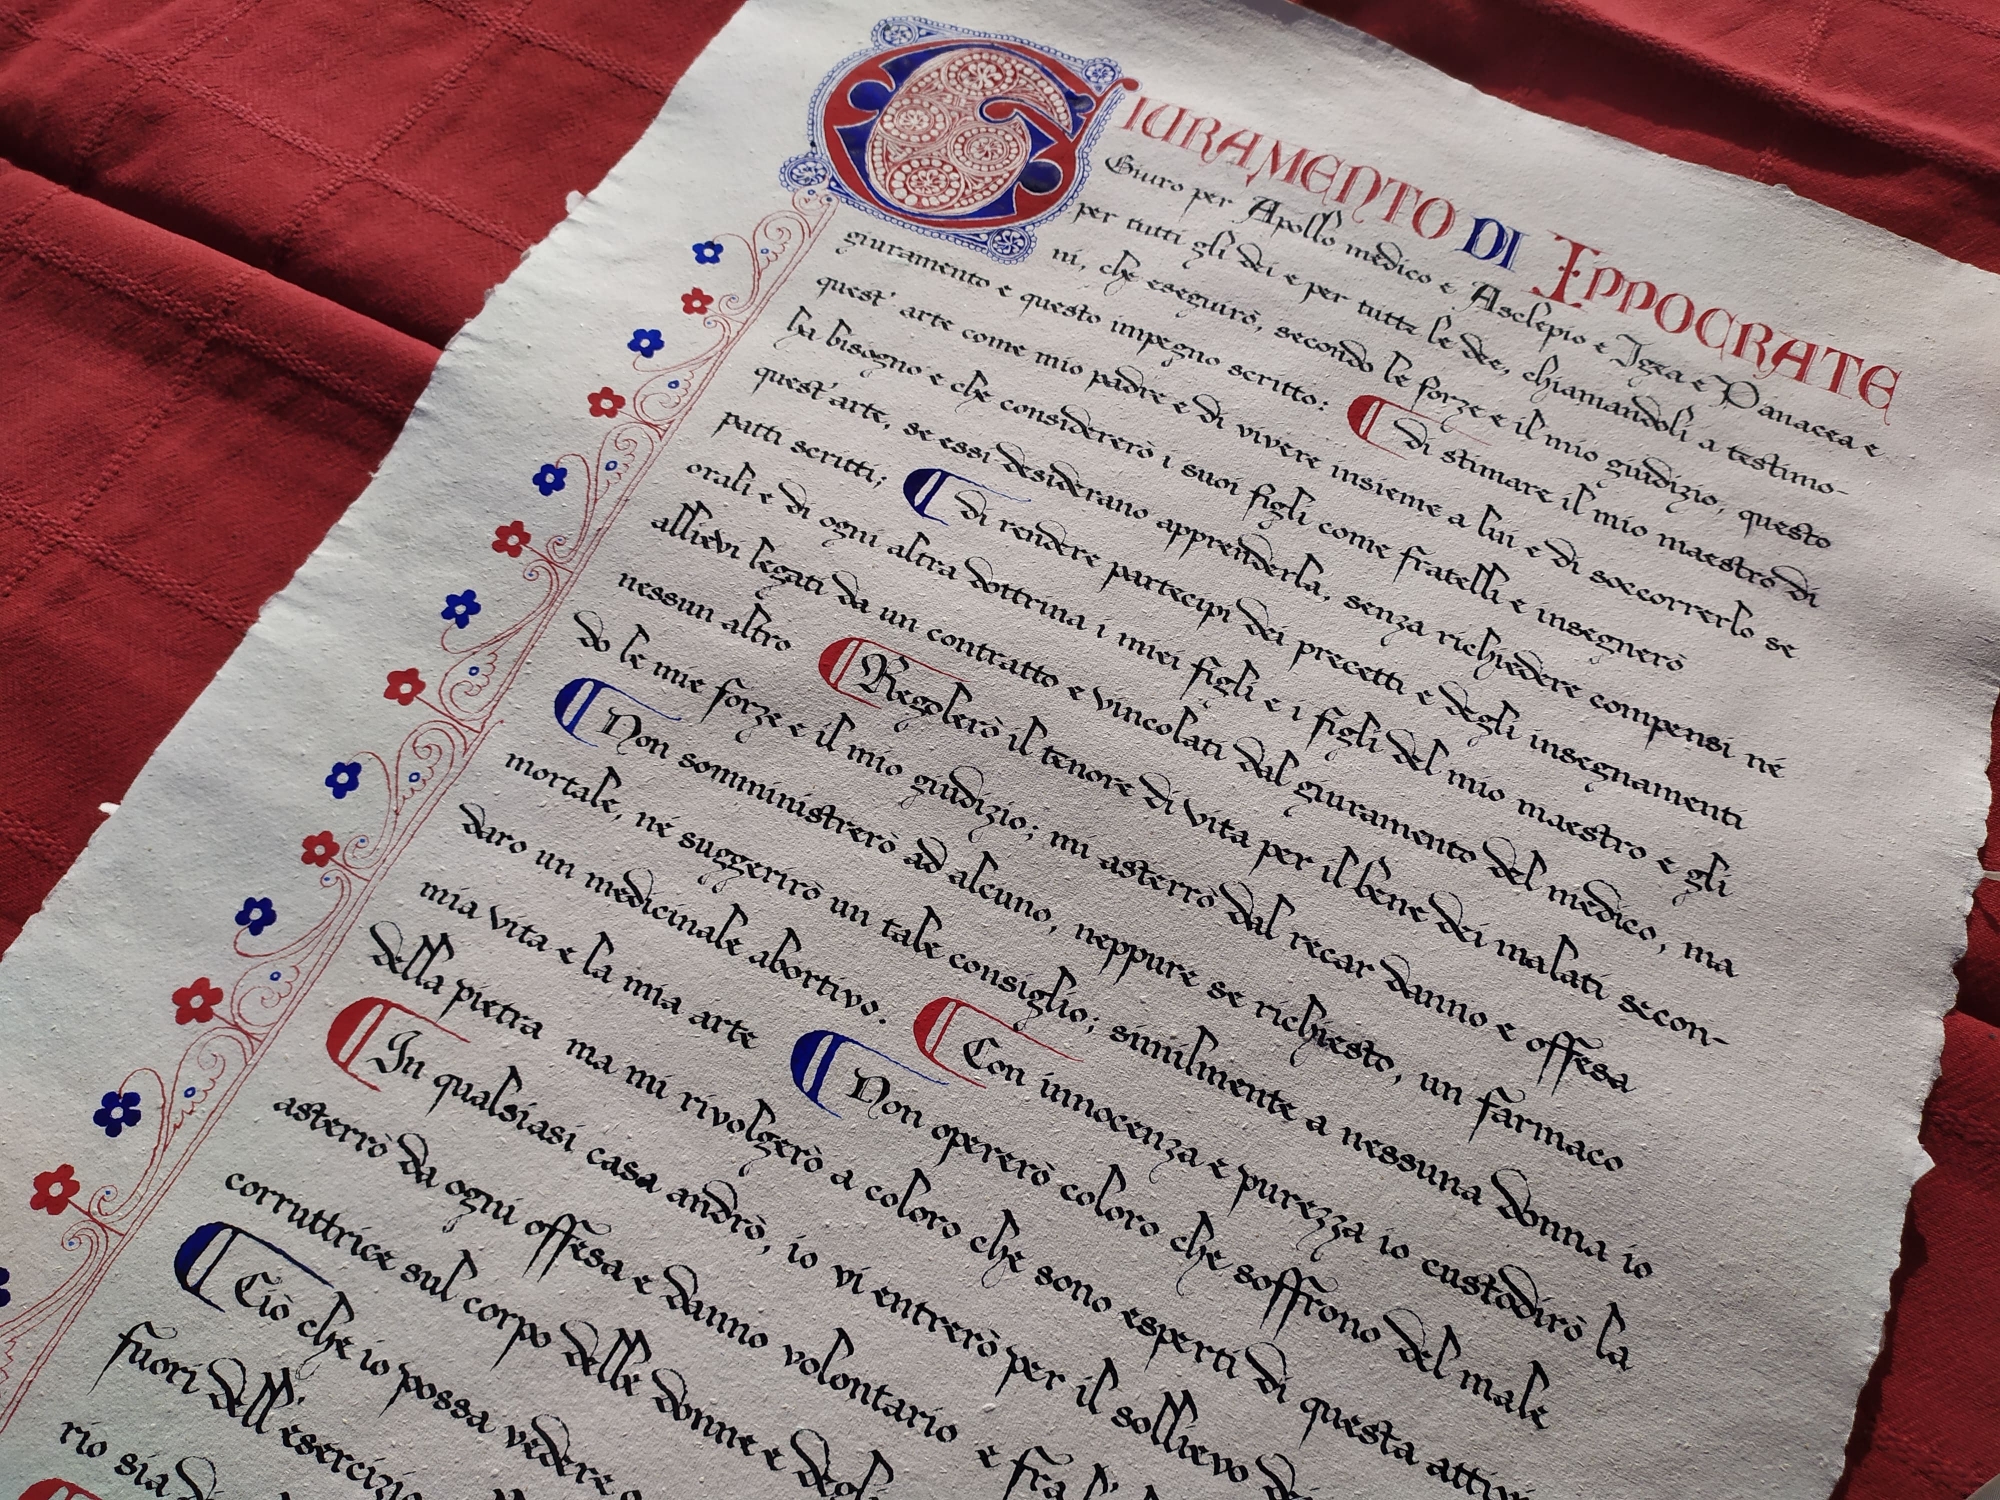 GIURAMENTO DI IPPOCRATE
Giuro per Apollo medico e Asclepio e Igea e Panacea e
per tutti gli dei e per tutte le dee, chiamandoli a testimo-
ni, che eseguirò, secondo le forze e il mio giudizio, questo
giuramento e questo impegno scritto: di stimare il mio maestro di
quest' arte come mio padre e di vivere insieme a lui e di soccorrerlo se
ha bisogno e che considererò i suoi figli come fratelli e insegnerò
quest'arte, se essi desiderano apprenderla, senza richiedere compensi né
patti scritti; di rendere partecipi dei precetti e degli insegnamenti
orali e di ogni altra dottrina i miei figli e i figli del mio maestro e gli
allievi legati da un contratto e vincolati dal giuramento del medico, ma
nessun altro Regolerò il tenore di vita per il bene dei malati secon-
do le mie forze e il mio giudizio; mi asterrò dal recar danno e offesa
Non somministrerò ad alcuno, neppure se richiesto, un farmaco
mortale, né suggerirò un tale consiglio; similmente a nessuna donna io
daro un medicinale abortivo. Con innocenza e purezza io custodirò la
mia vita e la mia arte Non opererò coloro che soffrono del male
della pietra ma mi rivolgerò a coloro che sono esperti di questa
In qualsiasi casa andrò, io vi entrerò per il sollievo
asterrò da ogni offesa e danno volontario e fra
corruttrice sul corpo delle donne e degli
Ciò che io possa vedere
fuori dell'esercizio
rio sia